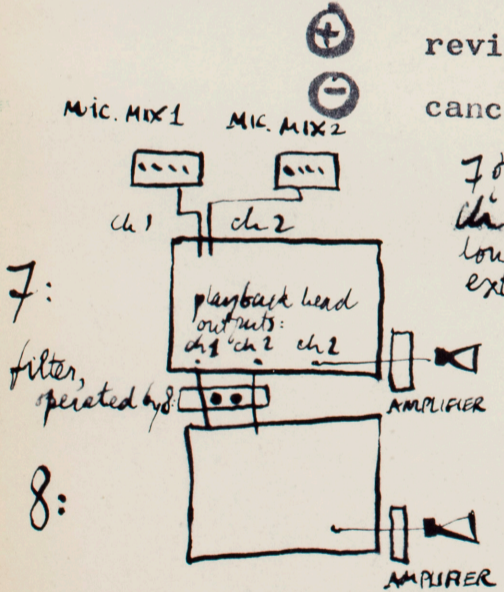 + revi
- canc
MIC. MIX 1 MIC. MIX 2
ch 1 ch 2
7:
playback head
outputs:
ch1 ch2 ch2
filter,
operated by 8:
AMPLIFIER
8:
AMPLIFIER
7
lou
ext